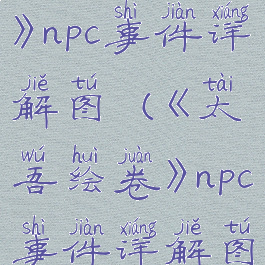 》npc事件详
shì jiàn xiáng
解图（《太
jiě tú tài
吾绘卷》npc
wú huì juàn
事件详解图
shì jiàn xiáng jiě tú